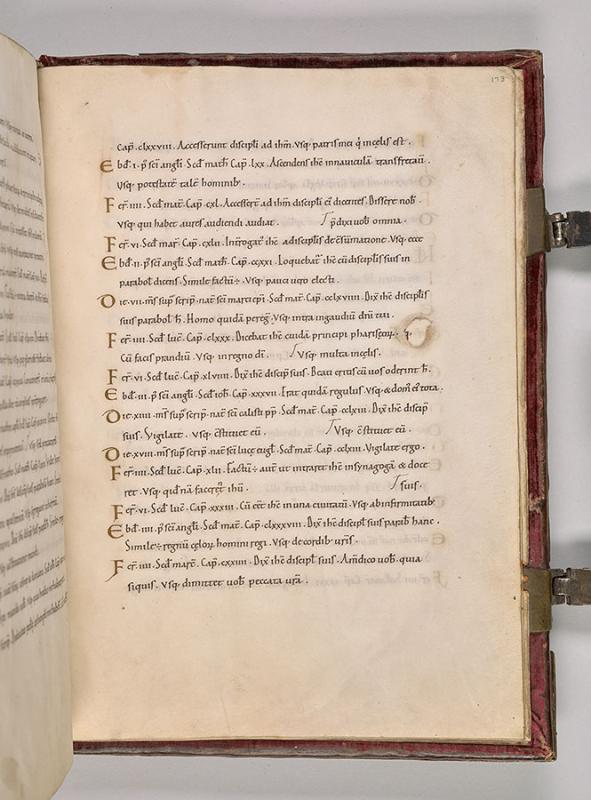 173
Cap̄. clxxviii. Accesserunt discipli ad ihm̄. Vsq; patris mei q́ in celis est.
Ebd̄. i. p̄ sc̄i angłi. Scd̄ math̄. Cap̄. lxx. Ascendens ihc̄ in nauiculā transfretauit.
Vsq; potestatē talē hominib;.
Fer̄. iiii. Scd̄ mat̄. Cap̄. cxl. Accesser̄ ad ihm̄ discipli ei dicentes. Dissere nob̄.
Vsq; qui habet aures audiendi audiat. p̄dixi uob̄ omnia.
Fer̄. vi. Scd̄ mar̄. Cap̄. cxlii. Interrogat̄ ihc̄ a discipli de c̄sumatione. Vsq; ecce
Ebd̄. ii. p̄ sc̄i angłi. Scd̄ math̄. Cap̄. ccxxi. Loquebat̄ ihc̄ cū discipłis suis in
parabol dicens. Simile factū ÷. Vsq; pauci uero electi.
Die. vii. m̄s sup̄ scrip̄. nat̄ sc̄i marci ep̄i. Scd̄ mat̄. Cap̄. cclxviiii. Dix̄ ihc̄ discipłis
suis parabol h̄. Homo quidā pereg̃. Vsq; intra in gaudiū dn̄i tui.
Fer̄. iiii. Scd̄ luc̄. Cap̄. clxxx. Dicebat ihc̄ cuidā principi phariseor̄.
Cū facis prandiū. Vsq; in regno dī. Vsq; multa in celis.
Fer̄. vi. Scd̄ luc̄. Cap̄. xlviiii. Dix̄ ihc̄ discip̄ suis. Beati eritis cū uos oderint h̄.
Ebd̄. iii. p̄ sc̄i angłi. Scd̄ ioh̄. Cap̄. xxxvii. Erat quidā regulus. Vsq; & dom̄ ei tota.
Die. xiiii. m̄s sup̄ scrip̄. nat̄ sc̄i calisti pp̄. Scd̄ mat̄. Cap̄. cclxiii. Dix̄ ihc̄ discip̄
suis. Vigilate. Vsq; c̄stituet eū. Vsq; c̄stituet eū.
Die. xviii. m̄s sup̄ scrip̄. nat̄ sc̄i luce eugł. Scd̄ mat̄. Cap̄. cclxiii. Vigilate ergo.
Fer̄. iiii. Scd̄ luc̄. Cap̄. xlii. Factū ÷ aut̄ ut intraret ihc̄ in synagogā & doce
ret. Vsq; quid nā facerēt ihū. suis.
Fer̄. vi. Scd̄ luc̄. Cap̄. xxxiii. Cū eēt ihc̄ in una ciuitatū. Vsq; ab infirmitatib;
Ebd̄. iiii. p̄ sc̄i angłi. Scd̄ mat̄. Cap̄. clxxxviii. Dix̄ ihc̄ discipł suis parab̄ hanc.
Simile ÷ regnū celor̄ homini regi. Vsq; de cordib; ur̄is.
Fer̄. iiii. Scd̄ marc̄. Cap̄. cxxiiii. Dix̄ ihc̄ discipł suis. Am̄ dico uob̄. quia
si quis. Vsq; dimittet uob̄ peccata ur̄a.